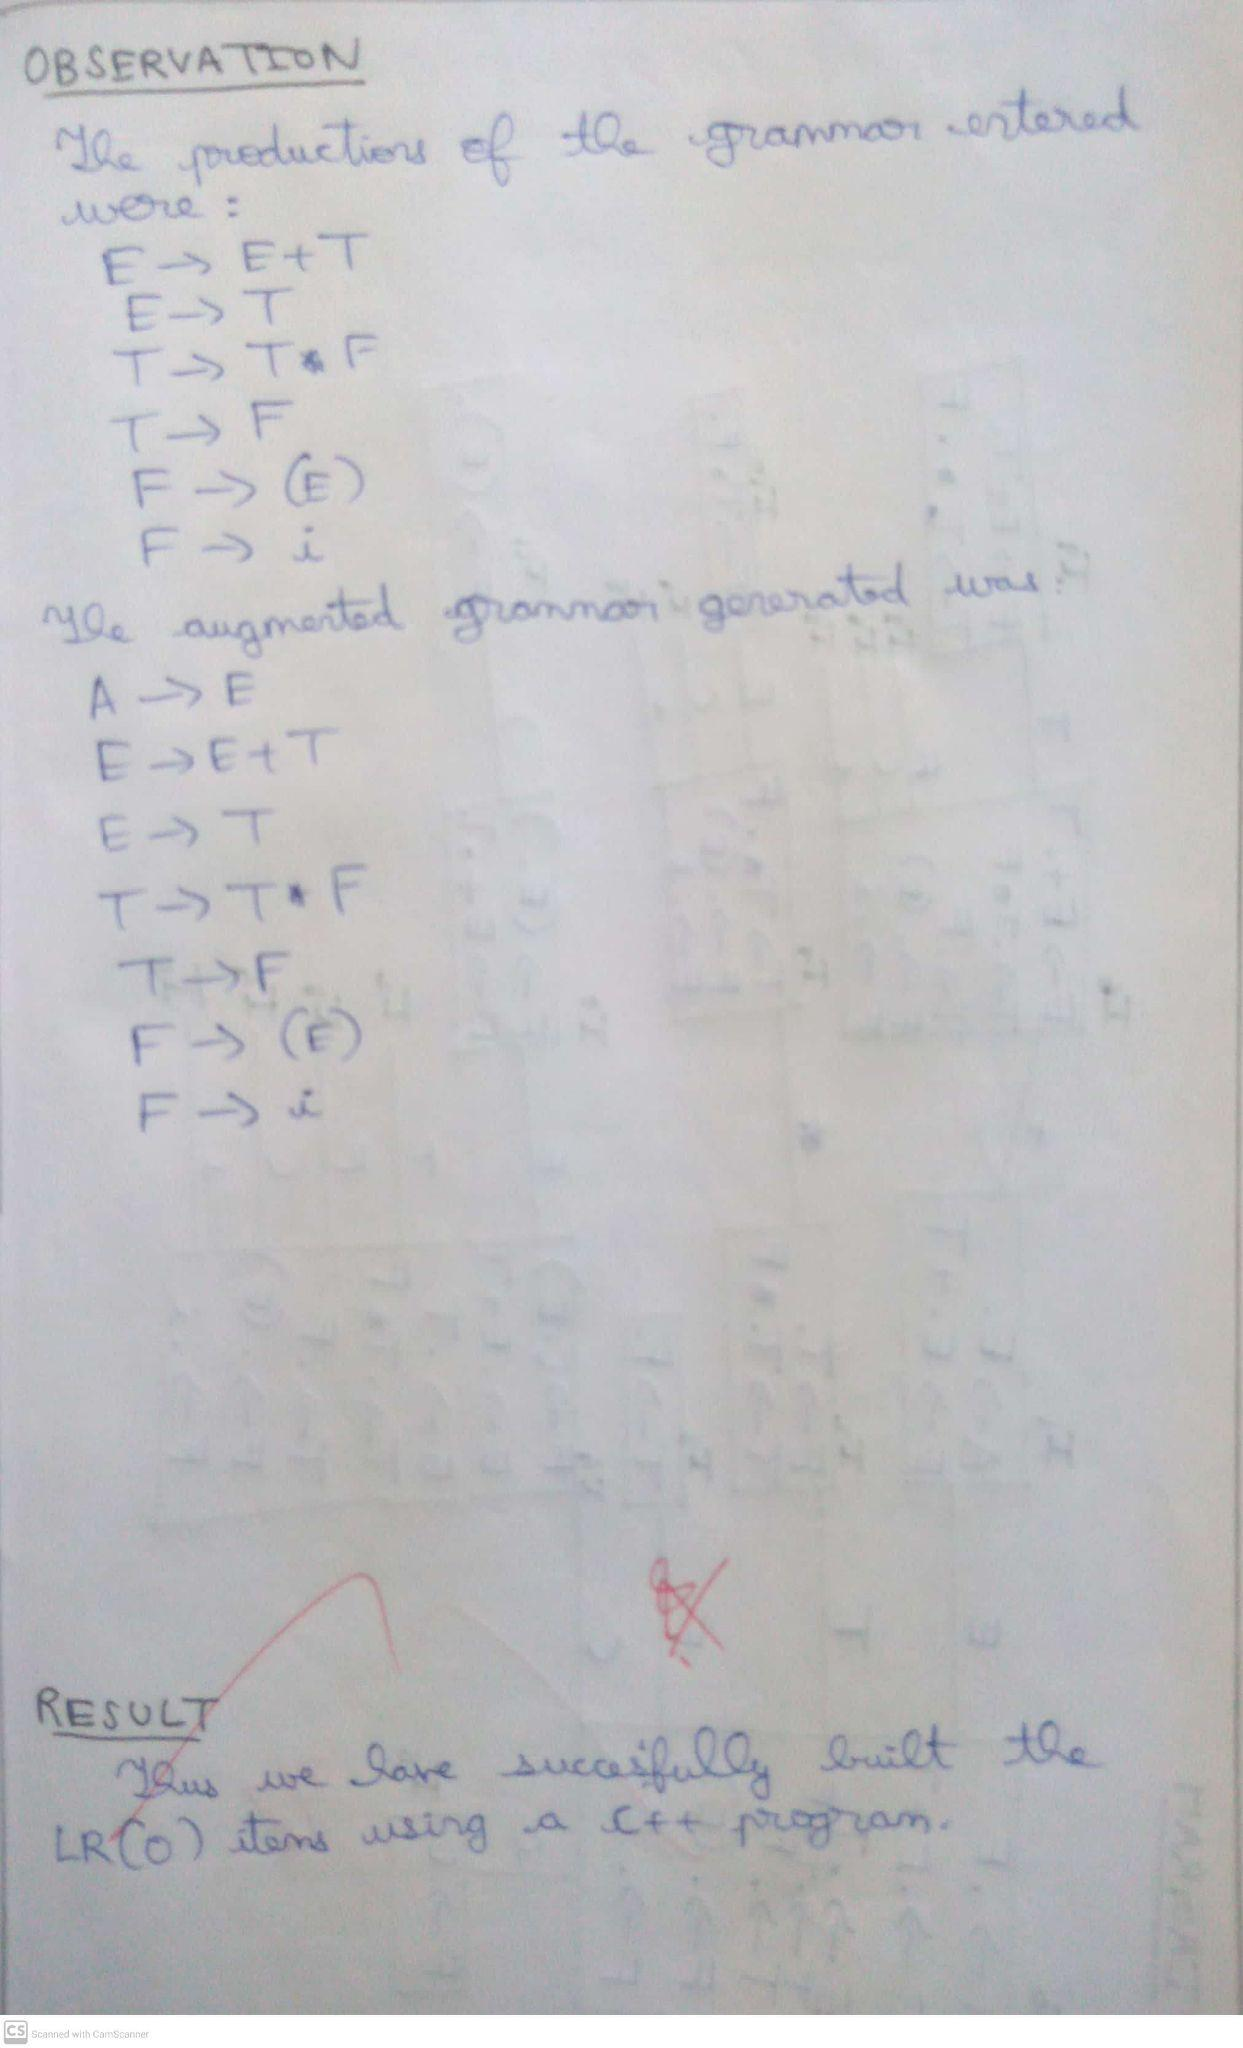 OBSERVATION
The productions of the grammar entered
were :
E → E+T
E → T
T → T * F
T → F
F → (E)
F → i
The augmented grammar generated was :
A → E
E → E+T
E → T
T → T * F
T → F
F → (E)
F → i
RESULT
Thus we have succesfully built the
LR(0) items using a C++ program.
CS Scanned with CamScanner